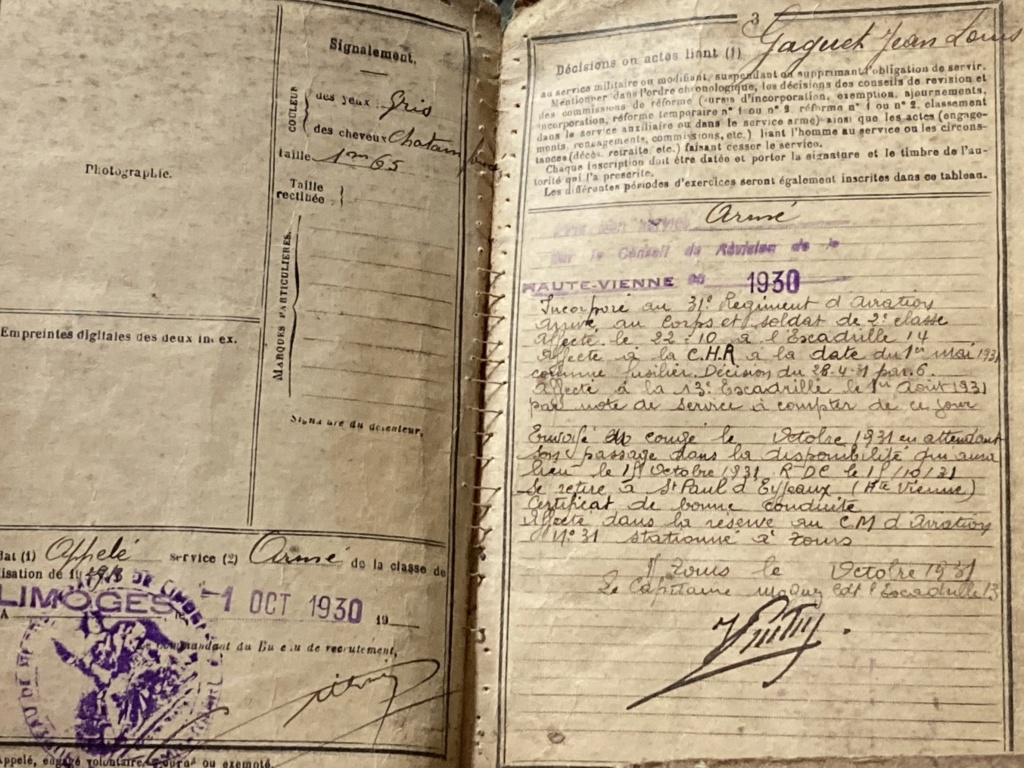 Photographie.
Empreintes digitales des deux index.
Signalement.
COULEUR
des yeux Gris
des cheveux Chatain
taille 1m 65
Taille rectifiée
MARQUES PARTICULIÈRES.
Signature du détenteur,
(1) Appelé service (2) Armé de la classe de
LIMOGES -1 OCT 1930 19
Le Commandant du Bureau de recrutement,
Appelé, engagé volontaire, ajourné ou exempté.
3
Gaguet Jean Louis
Décisions ou actes liant (1)
au service militaire ou modifiant, suspendant ou supprimant l'obligation de servir.
Mentionner dans l'ordre chronologique, les décisions des conseils de révision et
des commissions de réforme (sursis d'incorporation, exemption, ajournements,
incorporation, réforme temporaire n° 1 ou n° 2, réforme n° 1 ou n° 2, classement
dans le service auxiliaire ou dans le service armé) ainsi que les actes (engage-
ments, rengagements, commissions, etc.) liant l'homme au service ou les circons-
tances (décès, retraite, etc.) faisant cesser le service.
Chaque inscription doit être datée et porter la signature et le timbre de l'au-
torité qui l'a prescrite.
Les différentes périodes d'exercices seront également inscrites dans ce tableau.
service Armé
le Conseil de Révision de la
HAUTE-VIENNE en 1930
Incorporé au 31e Régiment d'Aviation
Arrivé au corps et soldat de 2e classe
Affecté le 22-10 à l'Escadrille 14
Affecté à la C.H.R à la date du 1er mai 1931
comme fusilier. Décision du 28-4-31 par. 6.
Affecté à la 13e Escadrille le 1er Août 1931
par note de service à compter de ce jour
Envoyé en congé le Octobre 1931 en attendant
son passage dans la disponibilité qui aura
lieu le 15 Octobre 1931. RDC le 15/10/31
Se retire à St Paul d'Eyjeaux (Hte Vienne)
Certificat de bonne conduite
Affecté dans la réserve au CM d'Aviation
N° 31 stationné à Tours
Tours le Octobre 1931
Le Capitaine Cdt l'Escadrille 13